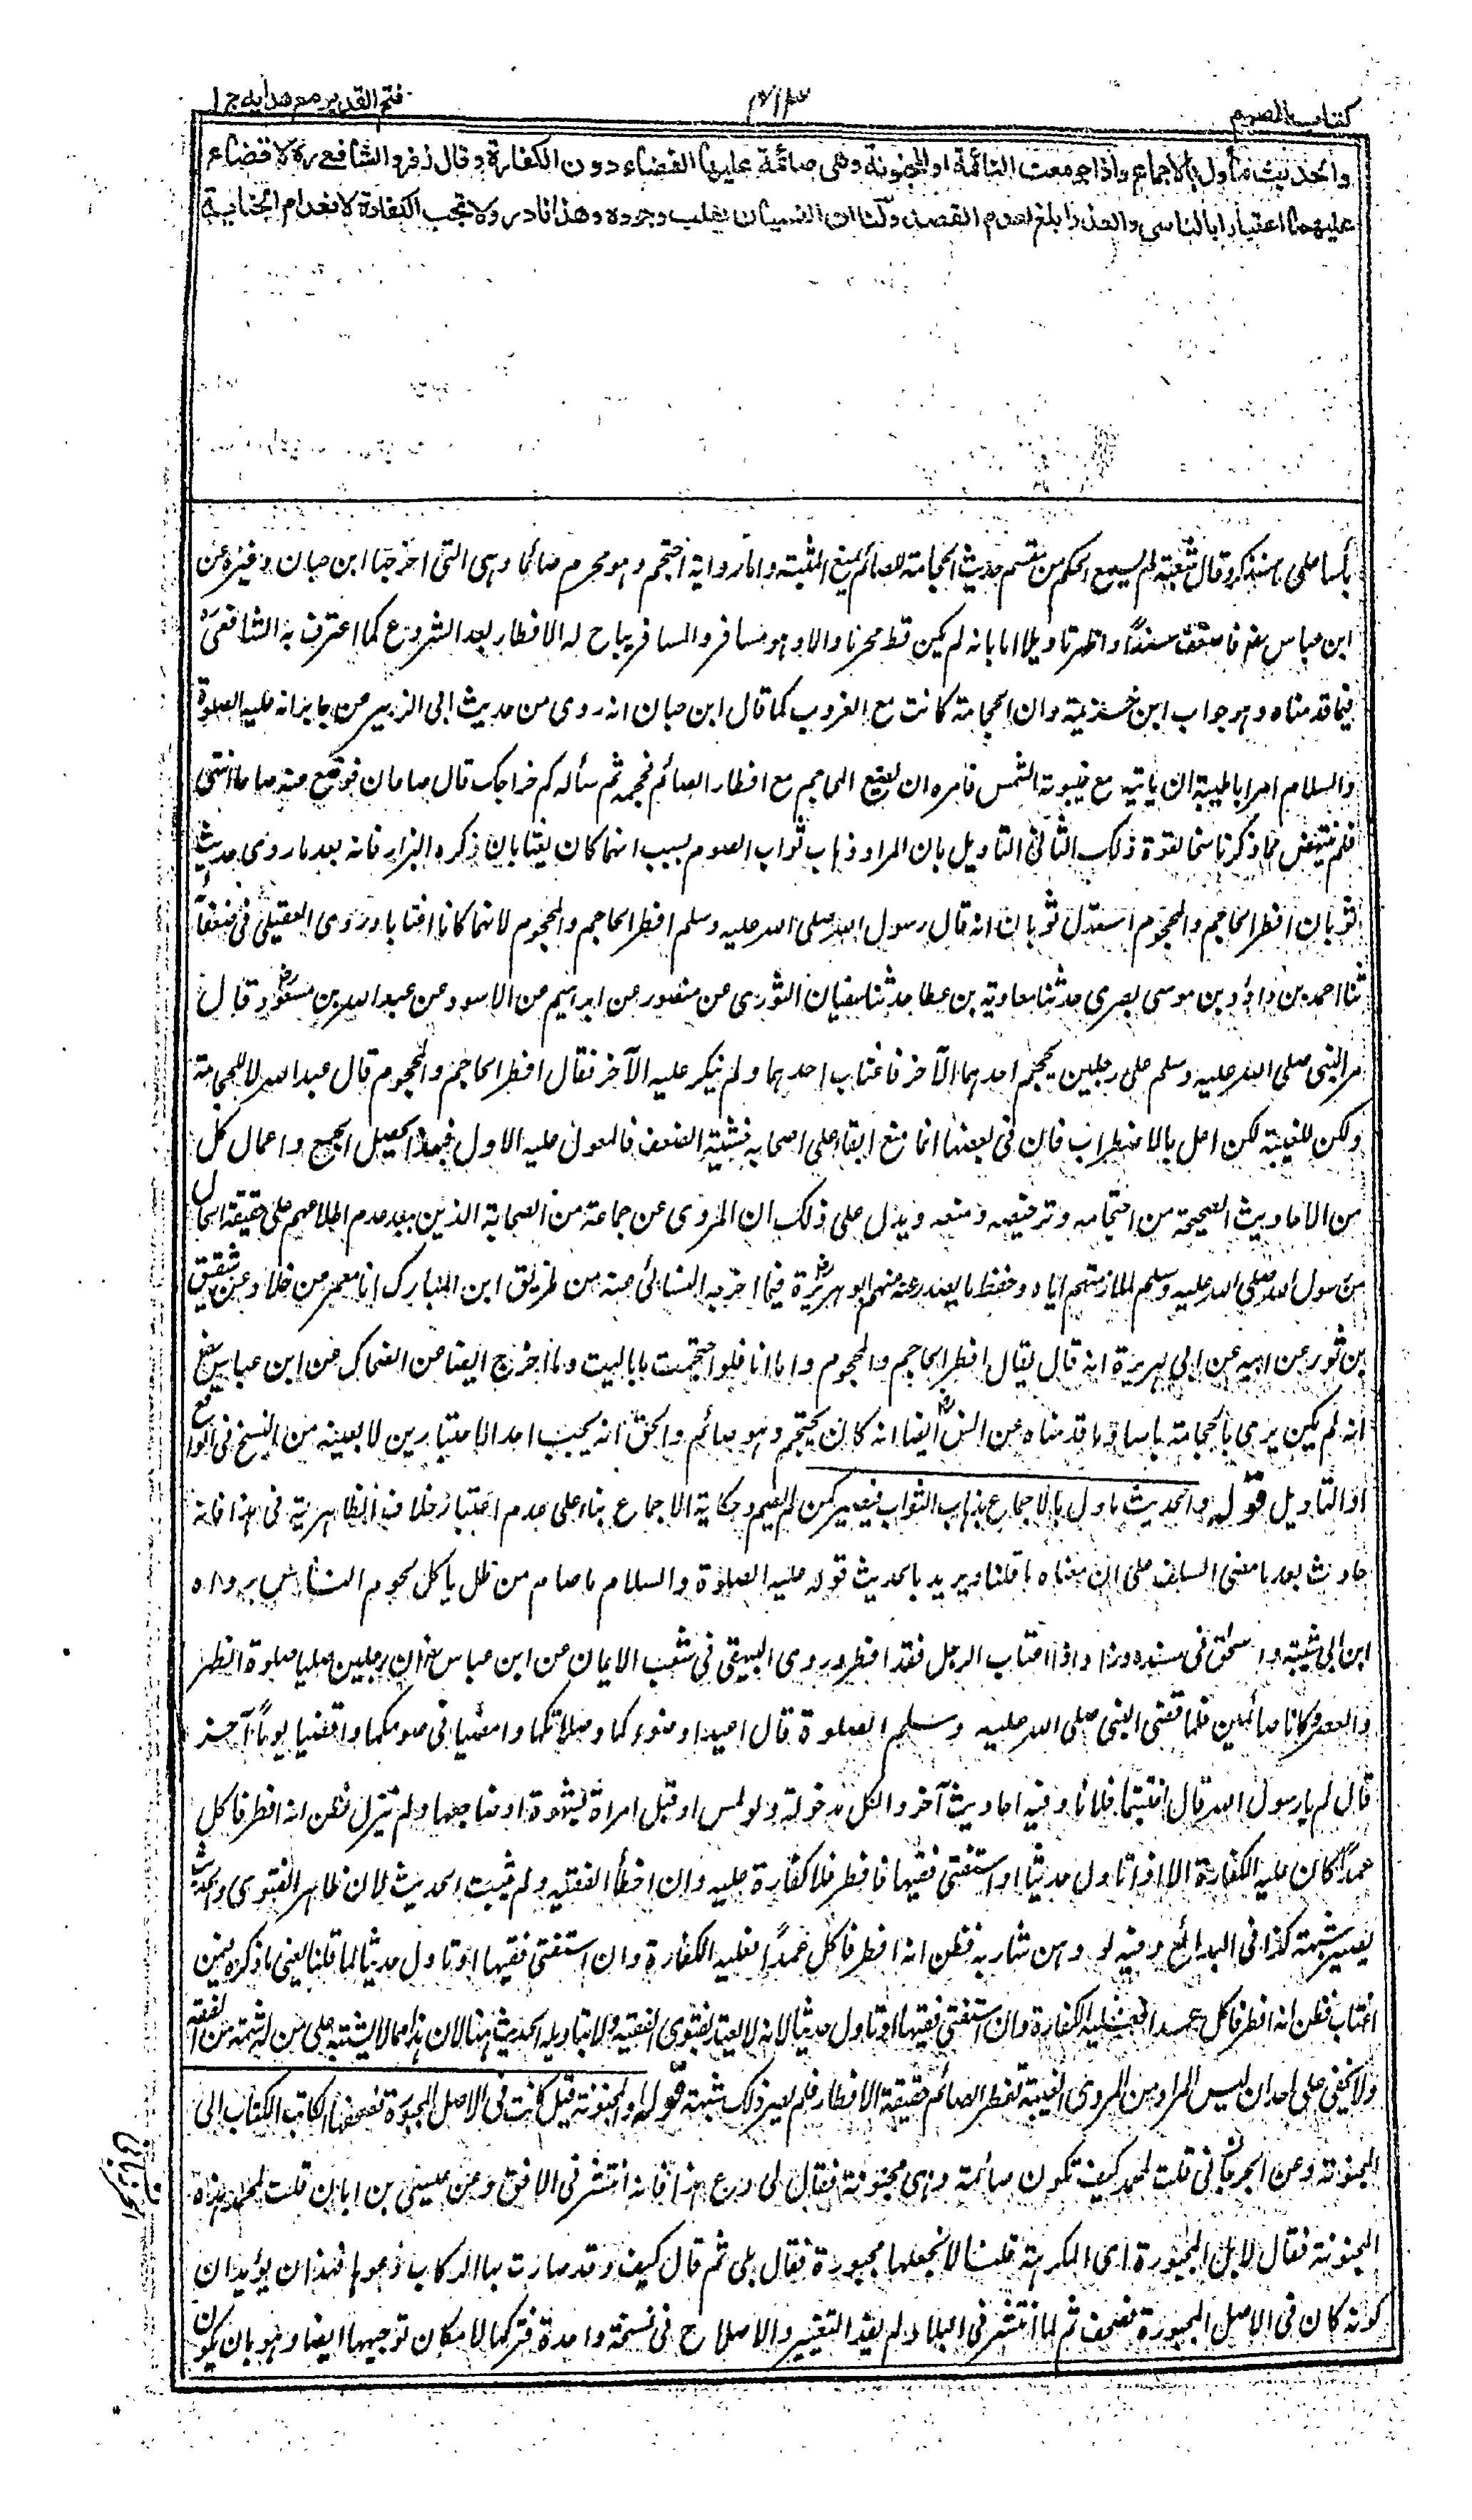 كتاب الصوم
٣١٣
فتح القدير مع هدايه ج ا
والحديث مأول بالاجماع واذا جومعت النائمة او المجنونة وهى صائمة عليها القضاء دون الكفارة وقال زفر والشافعي ره لا قضاء
عليهما اعتبارا بالناسي والعذر ابلغ لعدم القصد ولنا ان النسيان يغلب وجوده وهذا نادر ولا تجب الكفارة لانعدام الجناية
بأسا على ما سنذكر وقال شعبة لم يسمع الحكم من مقسم حديث الحجامة للصائم يمنع المثبت واما رواية احتجم وهو محرم صائم وهى التى اخرجها ابن حبان وغيره عن
ابن عباس رض فاضعف سندا واظهر تاويلا اما بانه لم يكن قط محرما والا وهو مسافر والمسافر يباح له الافطار بعد الشروع كما اعترف به الشافعى ره
فيما قدمناه وهو جواب ابن خزيمة وان الحجامة كانت مع الغروب كما قال ابن حبان انه روى من حديث ابى الزبير عن جابر انه عليه الصلوة
والسلام امر ابا طيبة ان ياتيه مع غيبوبة الشمس فامره ان يضع المحاجم مع افطار الصائم فحجمه ثم سأله كم خراجك قال صاعان فوضع عنه صاعا انتهى
فلم ينتهض مما ذكر ناسخا لقوة ذلك الثانى التاويل بان المراد ذهاب ثواب الصوم بسبب انهما كان يغتابان ذكره البزار فانه بعد ما روى حديث
ثوبان افطر الحاجم والمحجوم استدل ثوبان انه قال رسول الله صلى الله عليه وسلم افطر الحاجم والمحجوم لانهما كانا اغتابا وروى العقيلى فى ضعفائه
ثنا احمد بن داؤد بن موسى بصرى حدثنا معاوية بن عطا حدثنا سفيان الثورى عن منصور عن ابراهيم عن الاسود عن عبد الله بن مسعود رض قال
مر النبى صلى الله عليه وسلم على رجلين يحجم احدهما الآخر فاغتاب احدهما ولم ينكر عليه الآخر فقال افطر الحاجم والمحجوم قال عبد الله لا للحجامة
ولكن للغيبة لكن اعل بالاضطراب فان فى بعضها انما منع ابقاء على اصحابه خشية الضعف فالمعول عليه الاول فبهذا يحصل الجمع واعمال كل
من الاحاديث الصحيحة من احتجامه وترخيصه ومنعه ويدل على ذلك ان المروى عن جماعة من الصحابة الذين يبعد عدم اطلاعهم على حقيقة الحال
من رسول الله صلى الله عليه وسلم لملازمتهم اياه وحفظ ما يصدر عنه منهم ابو هريرة رض فيما اخرجه النسائى عنه من طريق ابن المبارك انا معمر عن خلاد عن شقيق
بن ثور عن ابيه عن ابى هريرة انه قال يقال افطر الحاجم والمحجوم واما انا فلو احتجمت ما باليت وما اخرج ايضا عن الضحاك عن ابن عباس رض
انه لم يكن يرى بالحجامة باسا وما قدمناه عن انس رض ايضا انه كان يحتجم وهو صائم والحق انه يجب احد الاعتبارين لا بعينه من النسخ فى الواقع
او التاويل قوله والحديث ماول بالاجماع بذهاب الثواب فيصير كمن لم يصم وحكاية الاجماع بناء على عدم اعتبار خلاف الظاهرية فى هذا فانه
حادث بعد ما مضى السلف على ان معناه ما قلنا ويريد بالحديث قوله عليه الصلوة والسلام ما صام من ظل ياكل لحوم الناس رواه
ابن ابى شيبة واسحٰق فى مسنده وزاد اذا اغتاب الرجل فقد افطر وروى البيهقى فى شعب الايمان عن ابن عباس رض ان رجلين صليا صلوة الظهر
والعصر وكانا صائمين فلما قضى النبى صلى الله عليه وسلم الصلوة قال اعيدا وضوءكما وصلاتكما وامضيا فى صومكما واقضيا يوما آخر
قال لم يا رسول الله قال اغتبتما فلانا وفيه احاديث آخر والكل مدخولة ولو لمس او قبل امرأة بشهوة او ضاجعها ولم ينزل فظن انه افطر فاكل
عمدا كان عليه الكفارة الا اذا تاول حديثا او استفتى فقيها فافطر فلا كفارة عليه وان اخطأ الفقيه ولم يثبت الحديث لان ظاهر الفتوى والحديث
يصير شبهة كذا فى البدائع وفيه لو دهن شاربه فظن انه افطر فاكل عمدا فعليه الكفارة وان استفتى فقيها او تاول حديثا لما قلنا يعنى ما ذكره فيمن
اغتاب فظن انه افطر فاكل عمدا فعليه الكفارة وان استفتى فقيها او تاول حديثا لانه لا يعتد بفتوى الفقيه ولا بتاويله الحديث هنا لان هذا مما لا يشتبه على من له شمة من الفقه
ولا يخفى على احد ان ليس المراد من المروى الغيبة تفطر الصائم حقيقة الافطار فلم يصر ذلك شبهة قوله او المجنونة قيل كانت فى الاصل المجبورة فصحفها الكاتب الى
المجنونة وعن الجوزجانى قلت لمحمد كيف تكون صائمة وهى مجنونة فقال لى دع هذا فانه انتشر فى الافق وعن عيسى بن ابان قلت لمحمد هذه
المجنونة فقال لا بل المجبورة اى المكرهة قلت الا نجعلها مجبورة فقال بلى ثم قال كيف وقد سارت بها الركاب دعوها فهذان يؤيدان
كونه كان فى الاصل المجبورة فصحف ثم لما انتشر فى البلاد لم يفد التغيير والاصلاح فى نسخة واحدة فتركها لامكان توجيهها ايضا وهو بان يكون